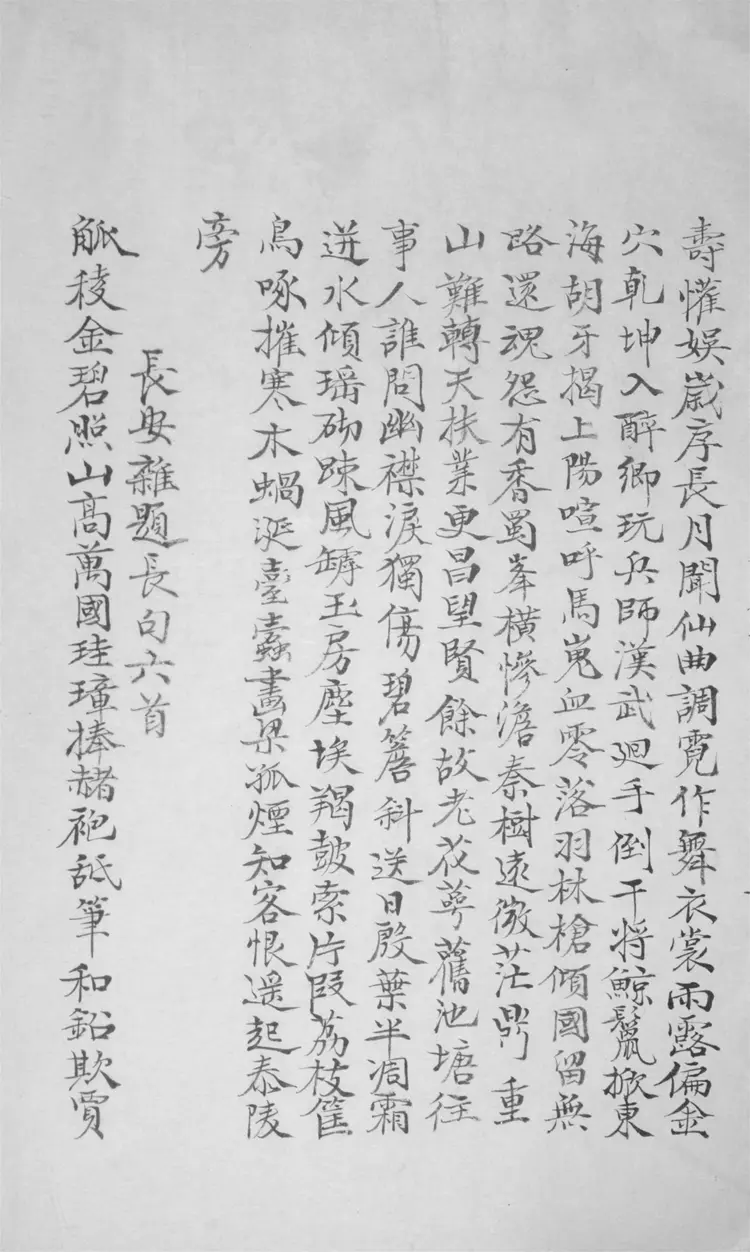 壽懽娛歲序長月聞仙曲調霓作舞衣裳雨露偏金
穴乾坤入醉鄉玩兵師漢武廻手倒干將鯨鬣掀東
海胡牙揭上陽喧呼馬嵬血零落羽林槍傾國留無
路還魂怨有香蜀峯橫慘澹秦樹遠微茫鼎重
山難轉天扶業更昌望賢餘故老花萼舊池塘往
事人誰問幽襟淚獨傷碧簷斜送日殷葉半凋霜
迸水傾瑶砌踈風罅玉房塵埃羯鼓索片段荔枝筐
鳥啄摧寒木蝸涎臺蠹畫梁孤煙知客恨遥起泰陵
旁
長安雜題長句六首
觚稜金碧照山高萬國珪璋捧赭袍舐筆和鉛欺賈